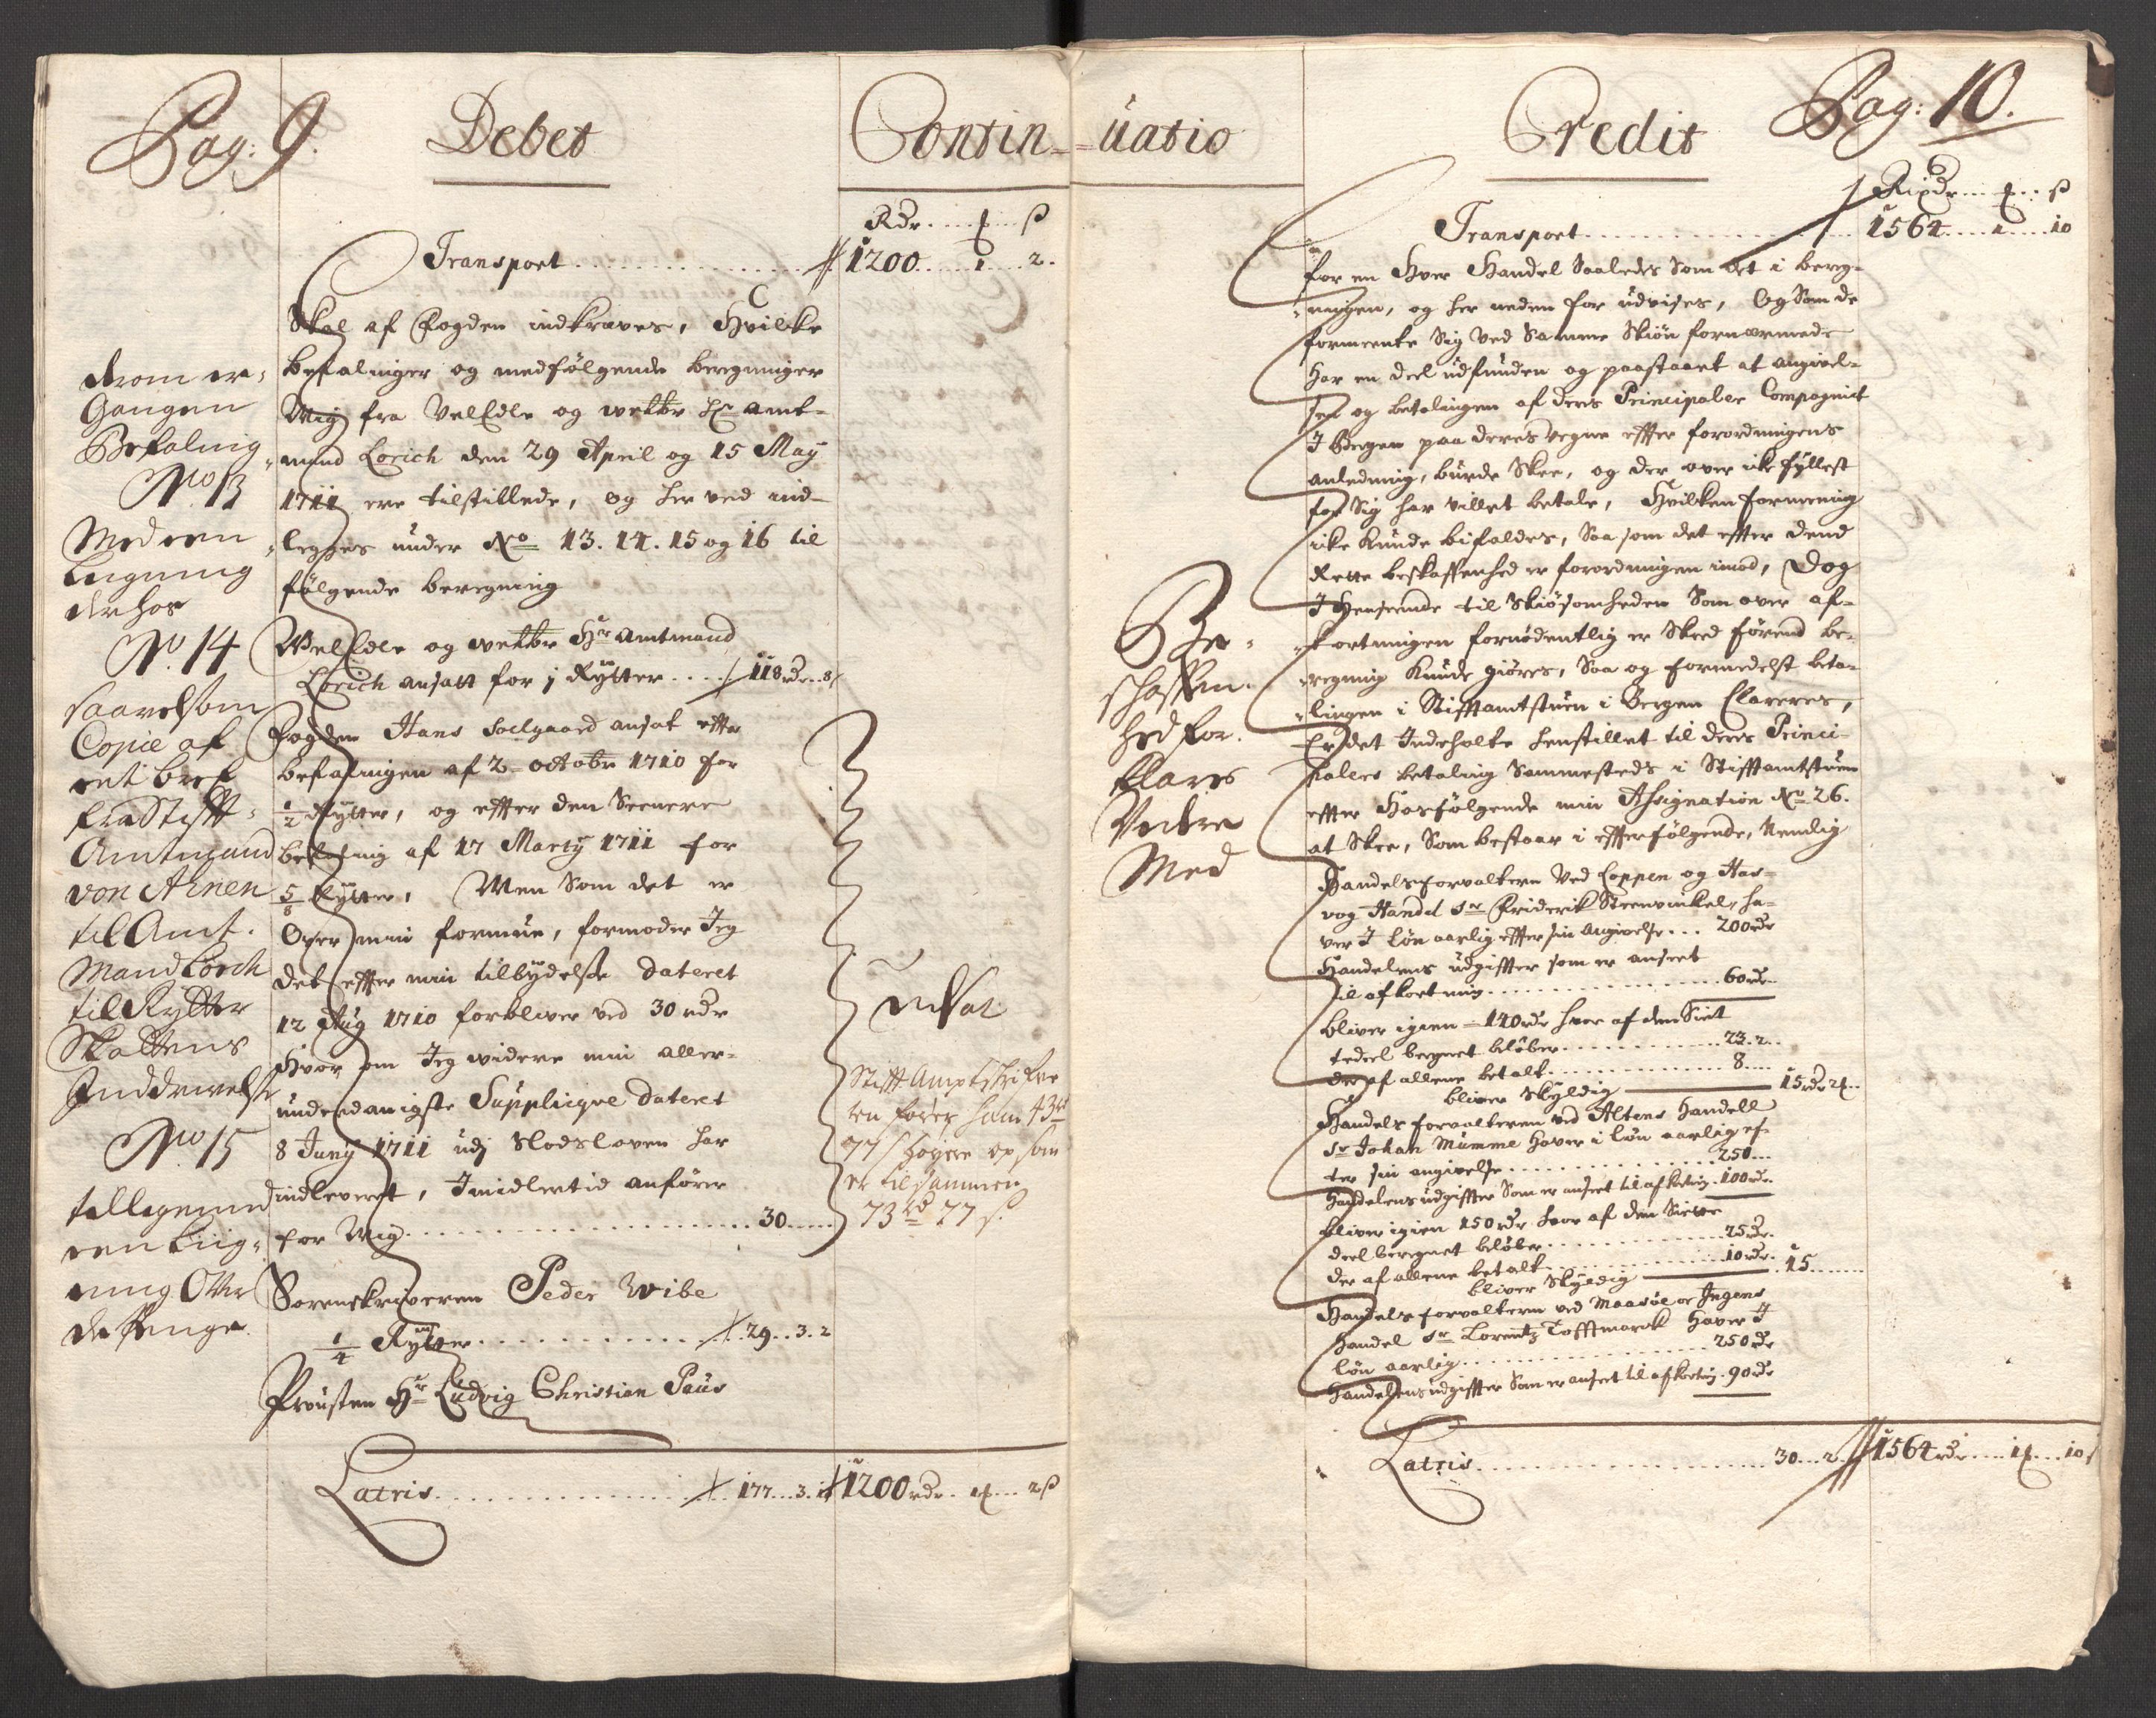 Pag: 9.
Debet
Contin=
Rdr. ... # ... ß
Transport ... 1200 ... 1 ... 2.
Skal af Fogden indkræves, Hvilke
befalinger og medfølgende beregninger
Mig fra VelEdle og  Hr Amt-
mand Lorich den 29 April og 15 May
1711 ere tilstillede, og her ved ind-
legges under No 13. 14. 15 og 16 til
følgende beregning
VelEdle og  Hr Amtmand
Lorich ansatt for 1 Rytter .... 118 rdr .. 8
Fogden Hans Soelgaard ansat efter
befalingen af 2 octobr 1710 for
1/2 Rytter, og efter den Seenere
befaling af 17 Marty 1711 for
5/8 Rytter, Men Som det er
Over min formue, formoder Jeg
det efter min tilbydelse dateret
12 Aug 1710 forbliver ved 30 rdr
Hvor om Jeg videre min aller-
underdanigste Supplique dateret
8 Juny 1711 udj Slodsloven har
indleveret, Imidlertid anfører
for Mig ... 30 ...
Sorenskriveren Peder Wibe
1/4 Rytter ... 29 .. 3. 2
Prousten Hr Ludvig Christian Paus
Latris ... 177 ... 3. 1200 rdr. 1 # ... 2 ß
drom er-
Gangen
Befaling
No 13
Med een
Ligning
derhos
No. 14
saavelsom
Copie af
et bref
fra Stifft-
Amtmand
von Ahnen
til Amt-
Mand Lorch
til Rytter
Skattens
Inddrivelse
No 15
tillige med
een Liig-
ning Over
de Penge
udsat
Stifft Amptskrifver
en fører ham 43 rd
77 ß høyere op som
er tilsammen
73 rd 77 ß.
=uatio
Credit
Pag: 10.
Rixdr ... # .. ß
Transport ... 1564 ... 1 ... 10
for en Hver Handel Saaledes Som det i bereg-
ningen, og her neden for udvises, Og Som de
formeente Sig ved Samme Skiøn fornærmede
har en deel udfunden og paastaaet at angivel-
sen og betalingen af deres Principaler Compagniet
I Bergen paa deres vegne effter forordningens
anledning, burde Skee, og der over icke fyllest
for Sig har villet betale, Hvilken formeening
icke kunde bifaldes, Saa som det effter dend
Rette beskaffenhed er forordningen imod, Dog
I Henseende til Skiøsomheden Som over af-
kortningen fornødentlig er Skeed førend be-
regning kunde giøres, Saa og formedelst beta-
lingen i Stifftamtstuen i Bergen Clareres,
Er det Indeholte henstillet til deres Princi-
palers betaling Sammesteds i Stifftamtstuen
effter Hosfølgende min Assignation No 26.
at Skee, Som bestaar i effterfølgende, Nemlig
Handelsforvaltern Ved Loppen og Has-
vog Handel Sr Friderik Steenvinkel, ha-
ver I løn aarlig effter sin angivelse ... 200 rdr
Handelens udgiffter som er anseet
til afkortning ... 60 rdr.
bliver igien - 140 rdr hvor af den Siet
tedeel beregnet beløber ... 23. 2 ..
der af allene betalt ... 8 ...
bliver Skyldig ... 15 rdr 2 # ..
Handels forvalteren ved Altens Handell
Sr Johan Mumme haver i løn aarlig ef-
ter sin angivelse ... 250 ...
Handelens udgiffter Som er anseet til afkortning . 100 rdr.
bliver igien 150 rdr hvor af den Siette
deel beregnet beløber ... 25 rdr.
der af allene betalt ... 10 rdr.
bliver Skyldig ... 15 ...
Handelsforvaltern ved Maasøe oc Ingens
Handel Sr Lorentz Tofftmarck haver I
løn aarlig ... 250 rdr
Handelens udgiffter Som er anseet til afkortning . 90 rdr
Latris ... 30 ... 2. 1564 rdr ... 1 # ... 10 ß
Be-
schaffen-
hed for-
klares
Videre
Med